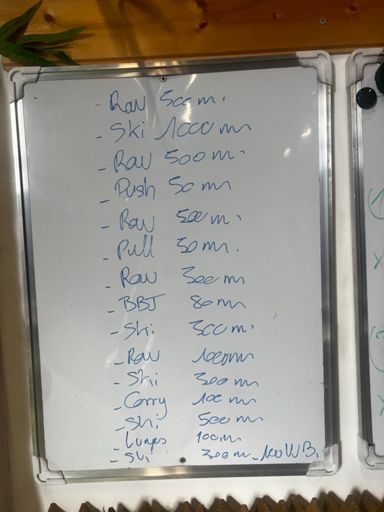 - Row 500m.
- Ski 1000m
- Row 500m.
- Push 50m
- Row 500m.
- Pull 50m.
- Row 300m
- BBJ 80m
- Ski 300m.
- Row 1000m
- Ski 300m
- Carry 100m
- Ski 500m
- Lunges 100m
- Ski 300m - 100 WB.